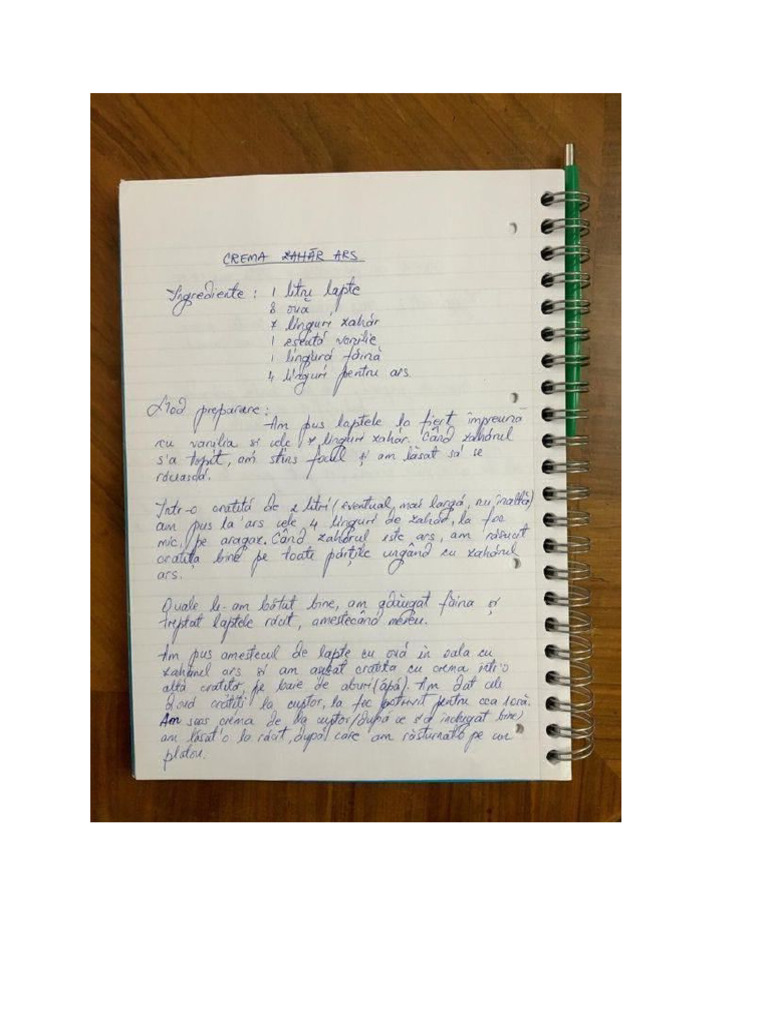 CREMA ZAHĂR ARS
Ingrediente: 1 litru lapte
8 ouă
7 linguri zahăr
1 esență vanilie
1 lingură făină
4 linguri pentru ars
Mod preparare:
Am pus laptele la fiert împreună
cu vanilia si cele 7 linguri zahăr. Când zahărul
s'a topit, am stins focul și am lăsat să se
răcească.
Într-o cratiță de 2 litri (eventual mai largă, nu înaltă)
am pus la ars cele 4 linguri de zahăr, la foc
mic, pe aragaz. Când zahărul este ars, am răsucit
cratița bine pe toate părțile ungând cu zahărul
ars.
Ouale le-am bătut bine, am adăugat făina și
treptat laptele răcit, amestecând mereu.
Am pus amestecul de lapte cu ouă în oala cu
zahărul ars și am așezat cratita cu crema într'o
altă cratită, pe baie de aburi (apă). Am dat cele
două crătiți la cuptor, la foc potrivit pentru cca 1 oră.
Am scos crema de la cuptor (după ce s'a închegat bine)
am lăsat'o la răcit, după care am răsturnat'o pe un
platou.